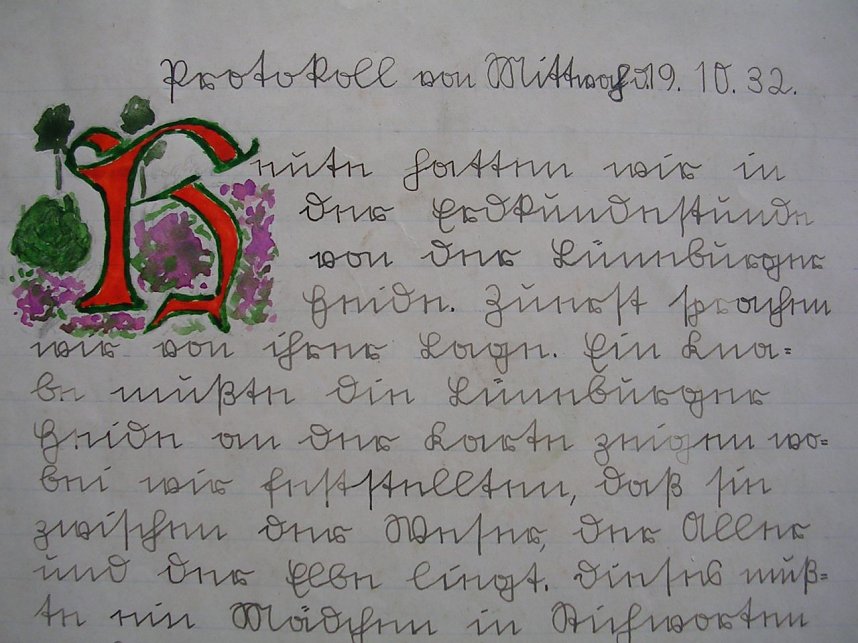 Protokoll von Mittwoch d. 19. 10. 32.
Heute hatten wir in
der Erdkundestunde
von der Lüneburger
Heide. Zuerst sprachen
wir von ihrer Lage. Ein Kna=
be mußte die Lüneburger
Heide an der Karte zeigen wo=
bei wir feststellten, daß sie
zwischen der Weser, der Aller
und der Elbe liegt. Dieses muß=
te ein Mädchen in Stichworten